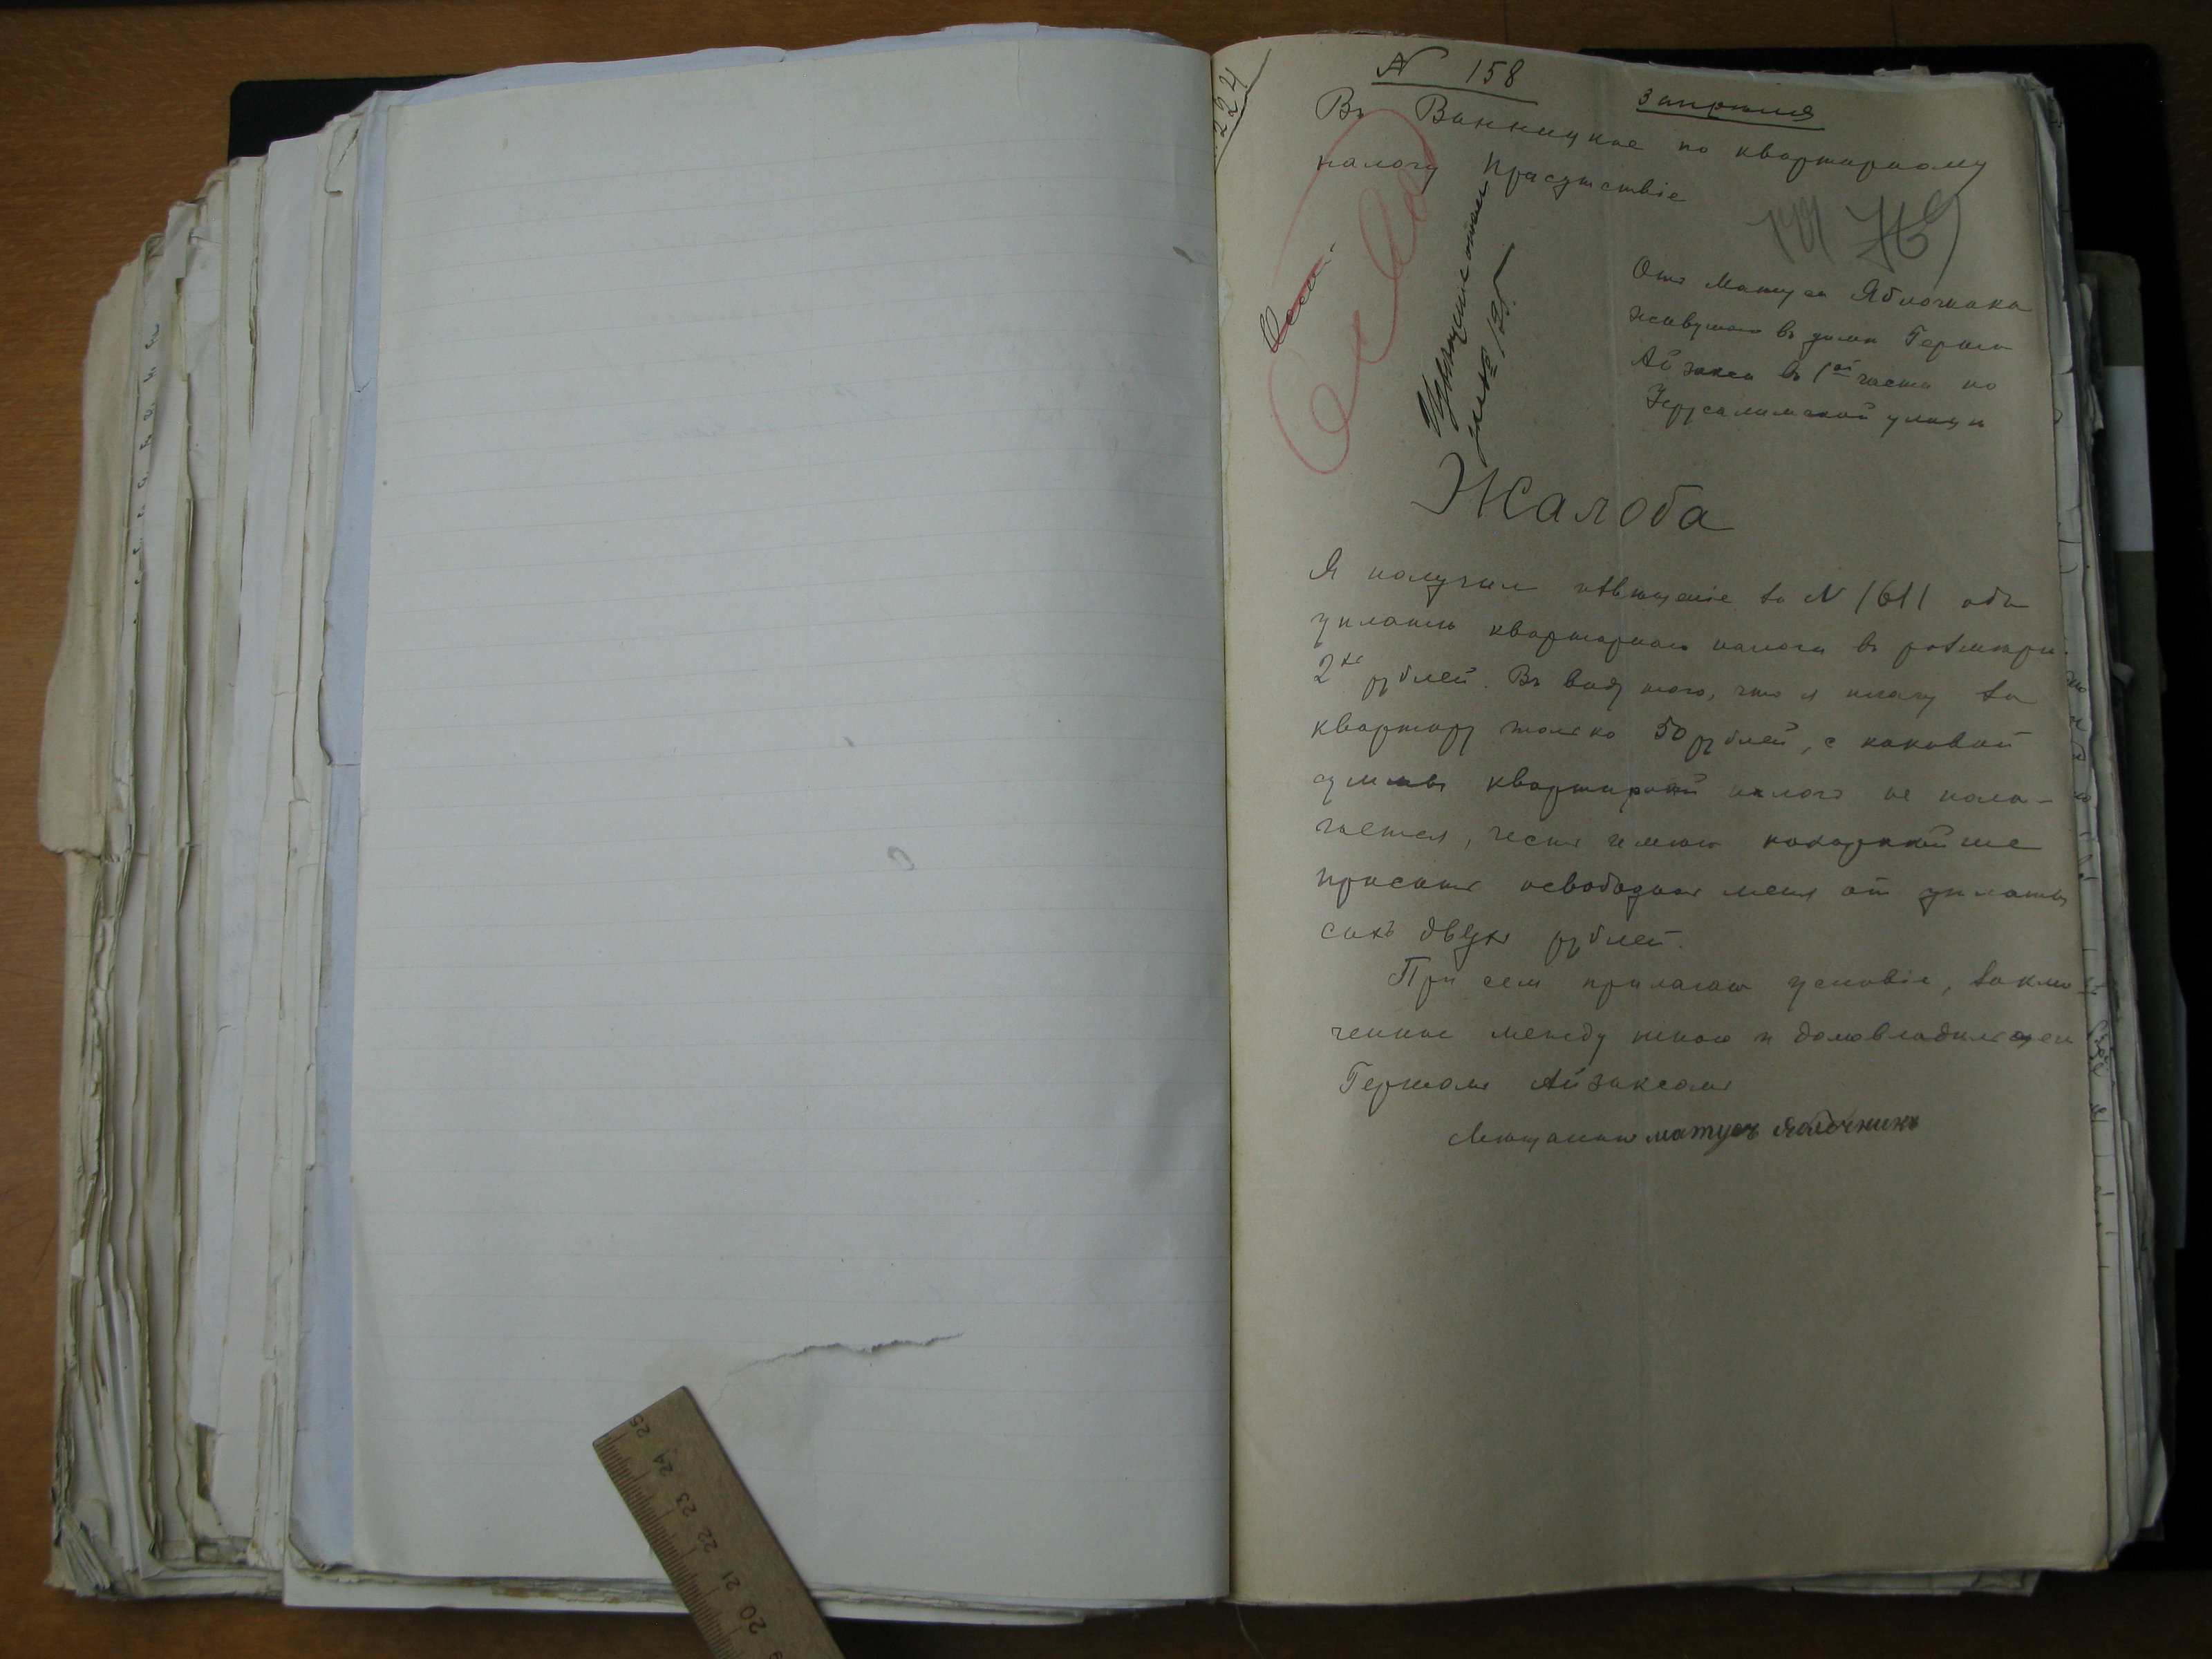 224
N 158
3 апреля
Въ Винницкое по квартирному
налогу Присутствіе
Отъ Матуса Яблочника
живущаго въ доме Герша
Айзакса въ 1ой части по
Іерусалимской улице
№ 125
Жалоба
Я получил извещеніе за N 1611 объ
уплате квартирнаго налога въ размере
2хъ рублей. Въ виду того, что я плачу за
квартиру только 50 рублей, с каковой
суммы квартирный налогъ не пола-
гается, честь имею покорнейше
просить освободить меня от уплаты
сихъ двухъ рублей.
При сем прилагаю условіе, заклю
ченное между мною и домовладельцем
Гершомъ Айзаксомъ
Мещанинъ Матусъ Яблочникъ
25 24 23 22 21 20